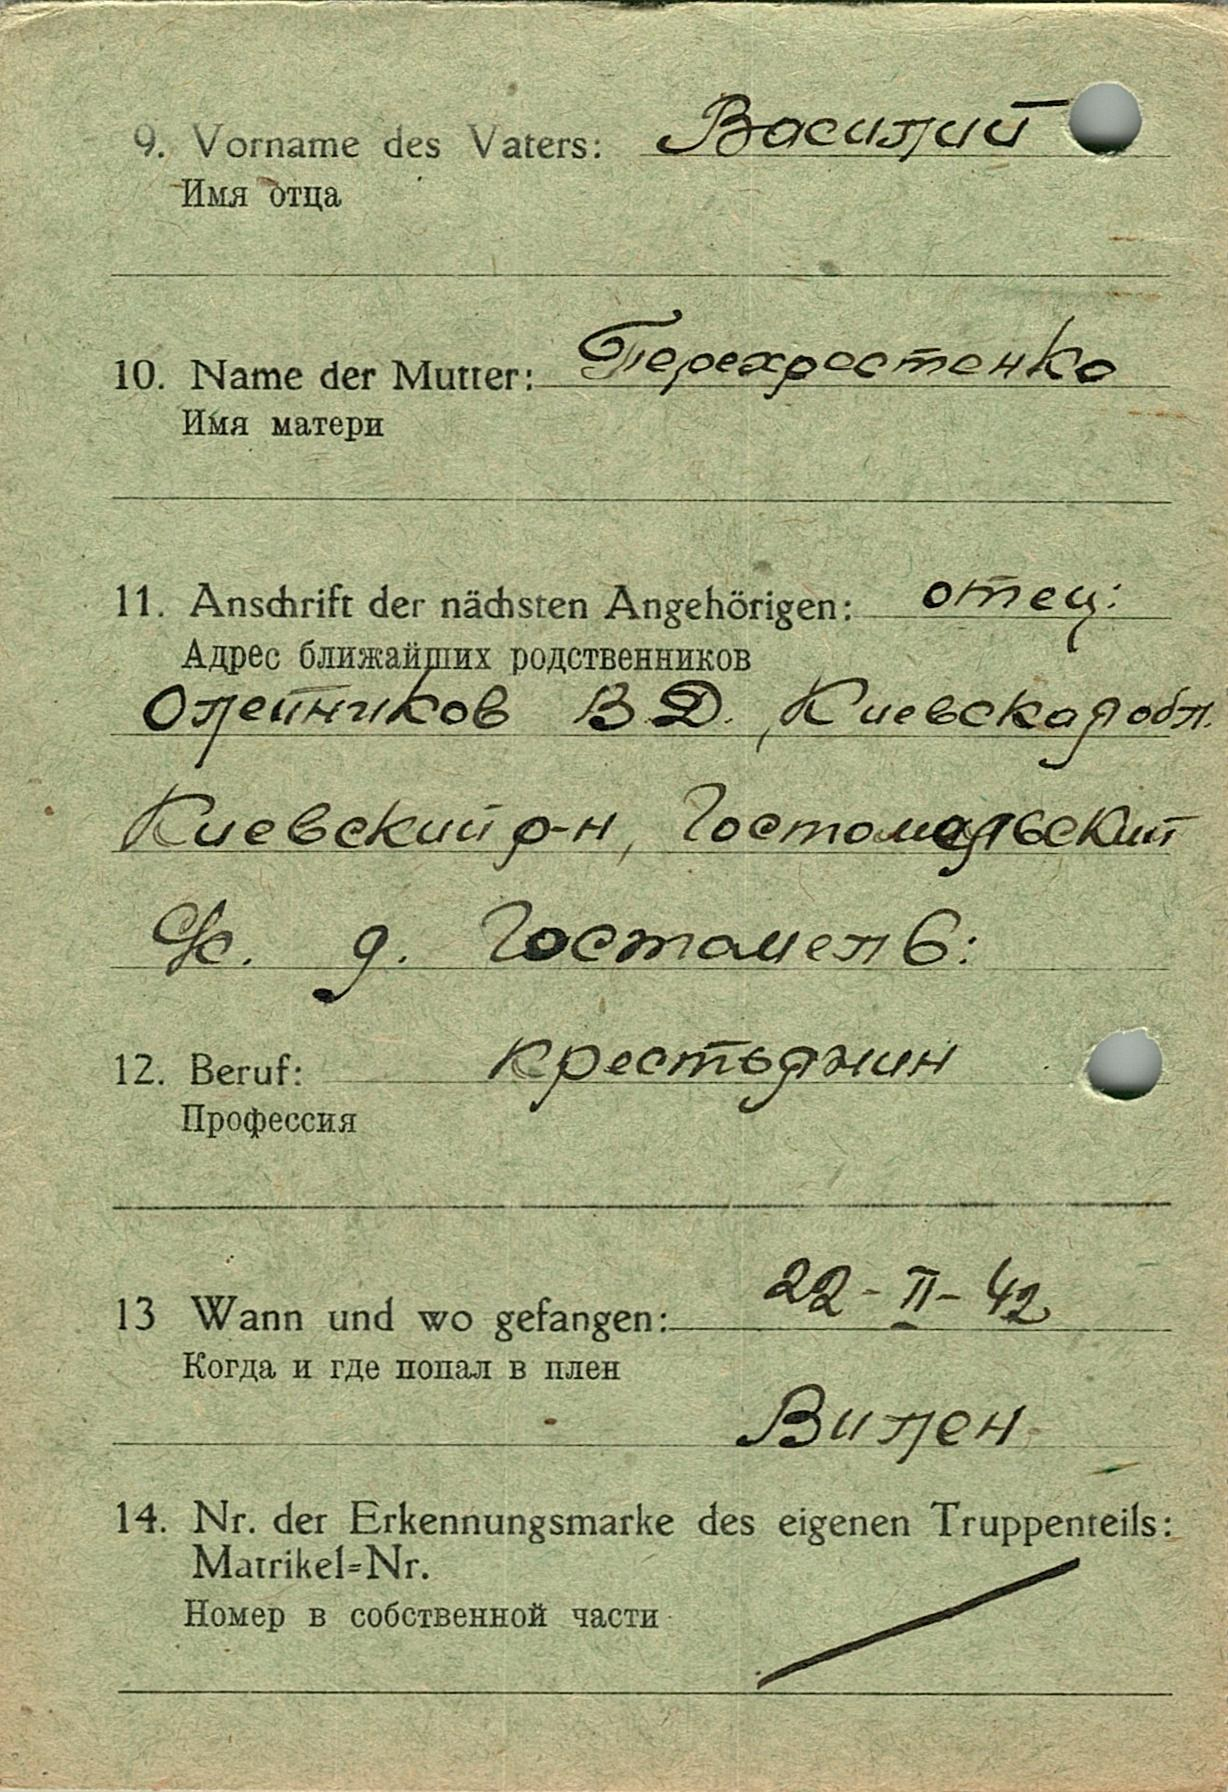 9. Vorname des Vaters: Василий
Имя отца
10. Name der Mutter: Перехрестенко
Имя матери
11. Anschrift der nächsten Angehörigen: отец:
Адрес ближайших родственников
Олейников В.Д., Киевская обл.
Киевский р-н, Гостомельский
с/с. д. Гостомель:
12. Beruf: крестьянин
Профессия
13 Wann und wo gefangen: 22-II-42
Когда и где попал в плен
Вилен
14. Nr. der Erkennungsmarke des eigenen Truppenteils:
Matrikel=Nr.
Номер в собственной части